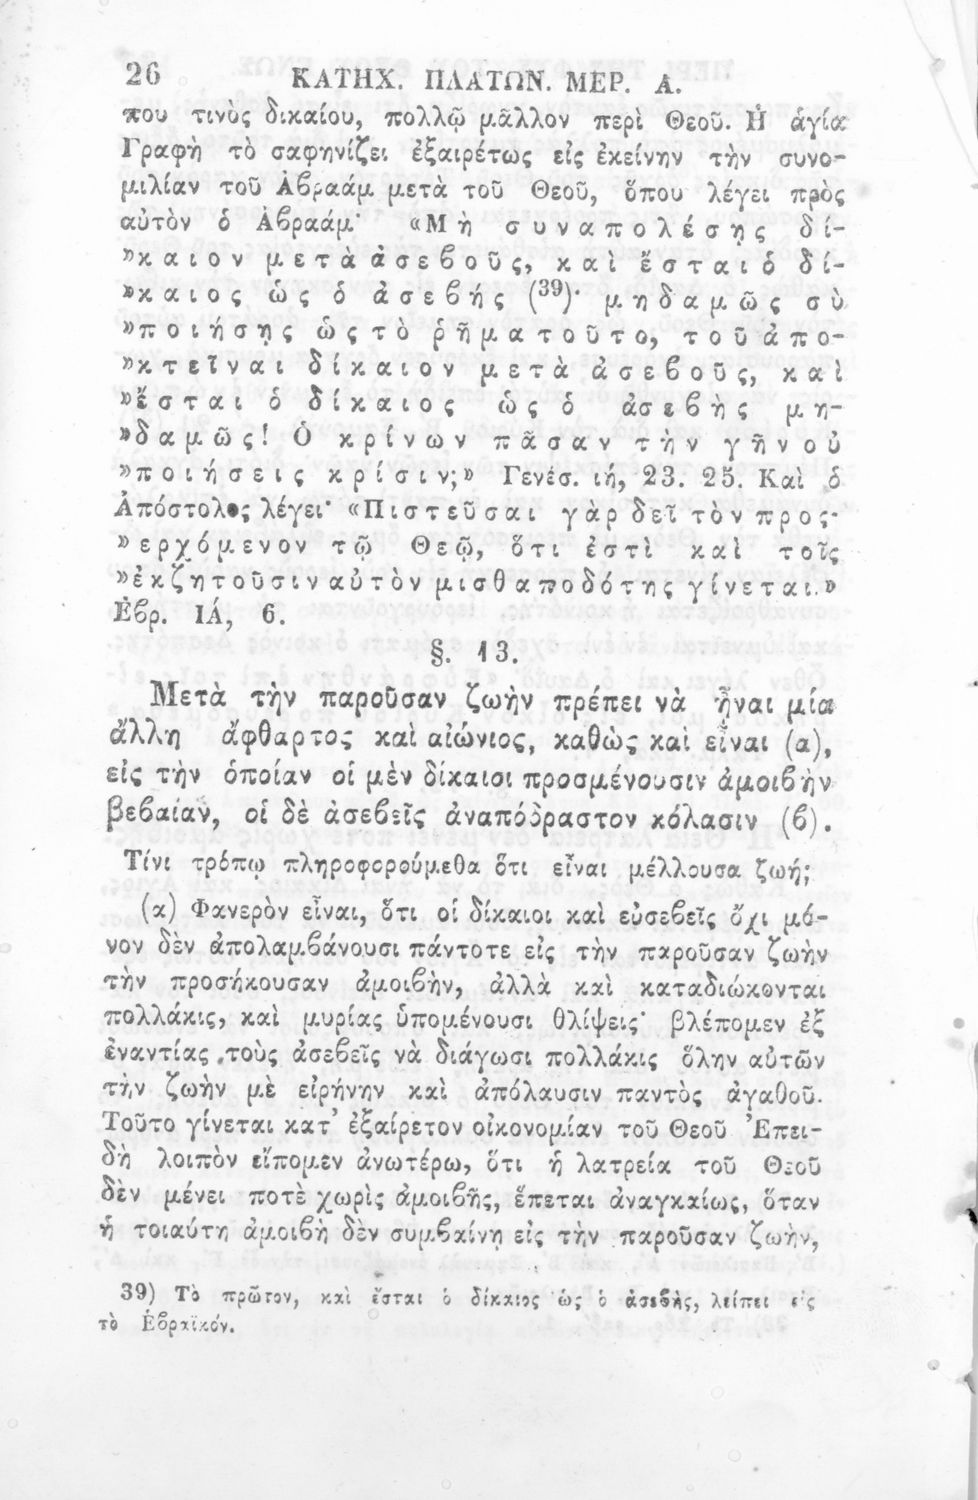 26 ΚΑΤΗΧ. ΠΛΑΤΩΝ. ΜΕΡ. Α.
που τινὸς δικαίου, πολλῷ μᾶλλον περὶ Θεοῦ. Ἡ ἁγία
Γραφὴ τὸ σαφηνίζει ἐξαιρέτως εἰς ἐκείνην τὴν συνο-
μιλίαν τοῦ Ἀβραάμ μετὰ τοῦ Θεοῦ, ὅπου λέγει πρὸς
αὐτὸν ὁ Ἀβραάμ· «Μὴ συναπολέσῃς δί-
»καιον μετὰ ἀσεβοῦς, καὶ ἔσται ὁ δί-
»καιος ὡς ὁ ἀσεβής (39)· μηδαμῶς σὺ
»ποιήσῃς ὡς τὸ ῥῆμα τοῦτο, τοῦ ἀπο-
»κτεῖναι δίκαιον μετὰ ἀσεβοῦς, καὶ
»ἔσται ὁ δίκαιος ὡς ὁ ἀσεβὴς μη-
»δαμῶς! Ὁ κρίνων πᾶσαν τὴν γῆν οὐ
»ποιήσεις κρίσιν;» Γενέσ. ιή, 23. 25. Καὶ ὁ
Ἀπόστολος λέγει· «Πιστεῦσαι γὰρ δεῖ τὸν προς-
»ερχόμενον τῷ Θεῷ, ὅτι ἐστὶ καὶ τοῖς
»ἐκζητοῦσιν αὐτὸν μισθαποδότης γίνεται.»
Ἑβρ. ΙΆ, 6.
§. 13.
Μετὰ τὴν παροῦσαν ζωὴν πρέπει νὰ ᾖναι μία
ἄλλη ἄφθαρτος καὶ αἰώνιος, καθὼς καὶ εἶναι (α),
εἰς τὴν ὁποίαν οἱ μὲν δίκαιοι προσμένουσιν ἀμοιβὴν
βεβαίαν, οἱ δὲ ἀσεβεῖς ἀναπόδραστον κόλασιν (β).
Τίνι τρόπῳ πληροφορούμεθα ὅτι εἶναι μέλλουσα ζωή;
(α) Φανερὸν εἶναι, ὅτι οἱ δίκαιοι καὶ εὐσεβεῖς ὄχι μό-
νον δὲν ἀπολαμβάνουσι πάντοτε εἰς τὴν παροῦσαν ζωὴν
τὴν προσήκουσαν ἀμοιβὴν, ἀλλὰ καὶ καταδιώκονται
πολλάκις, καὶ μυρίας ὑπομένουσι θλίψεις· βλέπομεν ἐξ
ἐναντίας τοὺς ἀσεβεῖς νὰ διάγωσι πολλάκις ὅλην αὐτῶν
τὴν ζωὴν μὲ εἰρήνην καὶ ἀπόλαυσιν παντὸς ἀγαθοῦ.
Τοῦτο γίνεται κατ᾽ ἐξαίρετον οἰκονομίαν τοῦ Θεοῦ Ἐπει-
δὴ λοιπὸν εἴπομεν ἀνωτέρω, ὅτι ἡ λατρεία τοῦ Θεοῦ
δὲν μένει ποτὲ χωρὶς ἀμοιβῆς, ἕπεται ἀναγκαίως, ὅταν
ἡ τοιαύτη ἀμοιβὴ δὲν συμβαίνῃ εἰς τὴν παροῦσαν ζωὴν,
39) Τὸ πρῶτον, καὶ ἔσται ὁ δίκαιος ὡς ὁ ἀσεβὴς, λείπει εἰς
τὸ Ἑβραϊκόν.